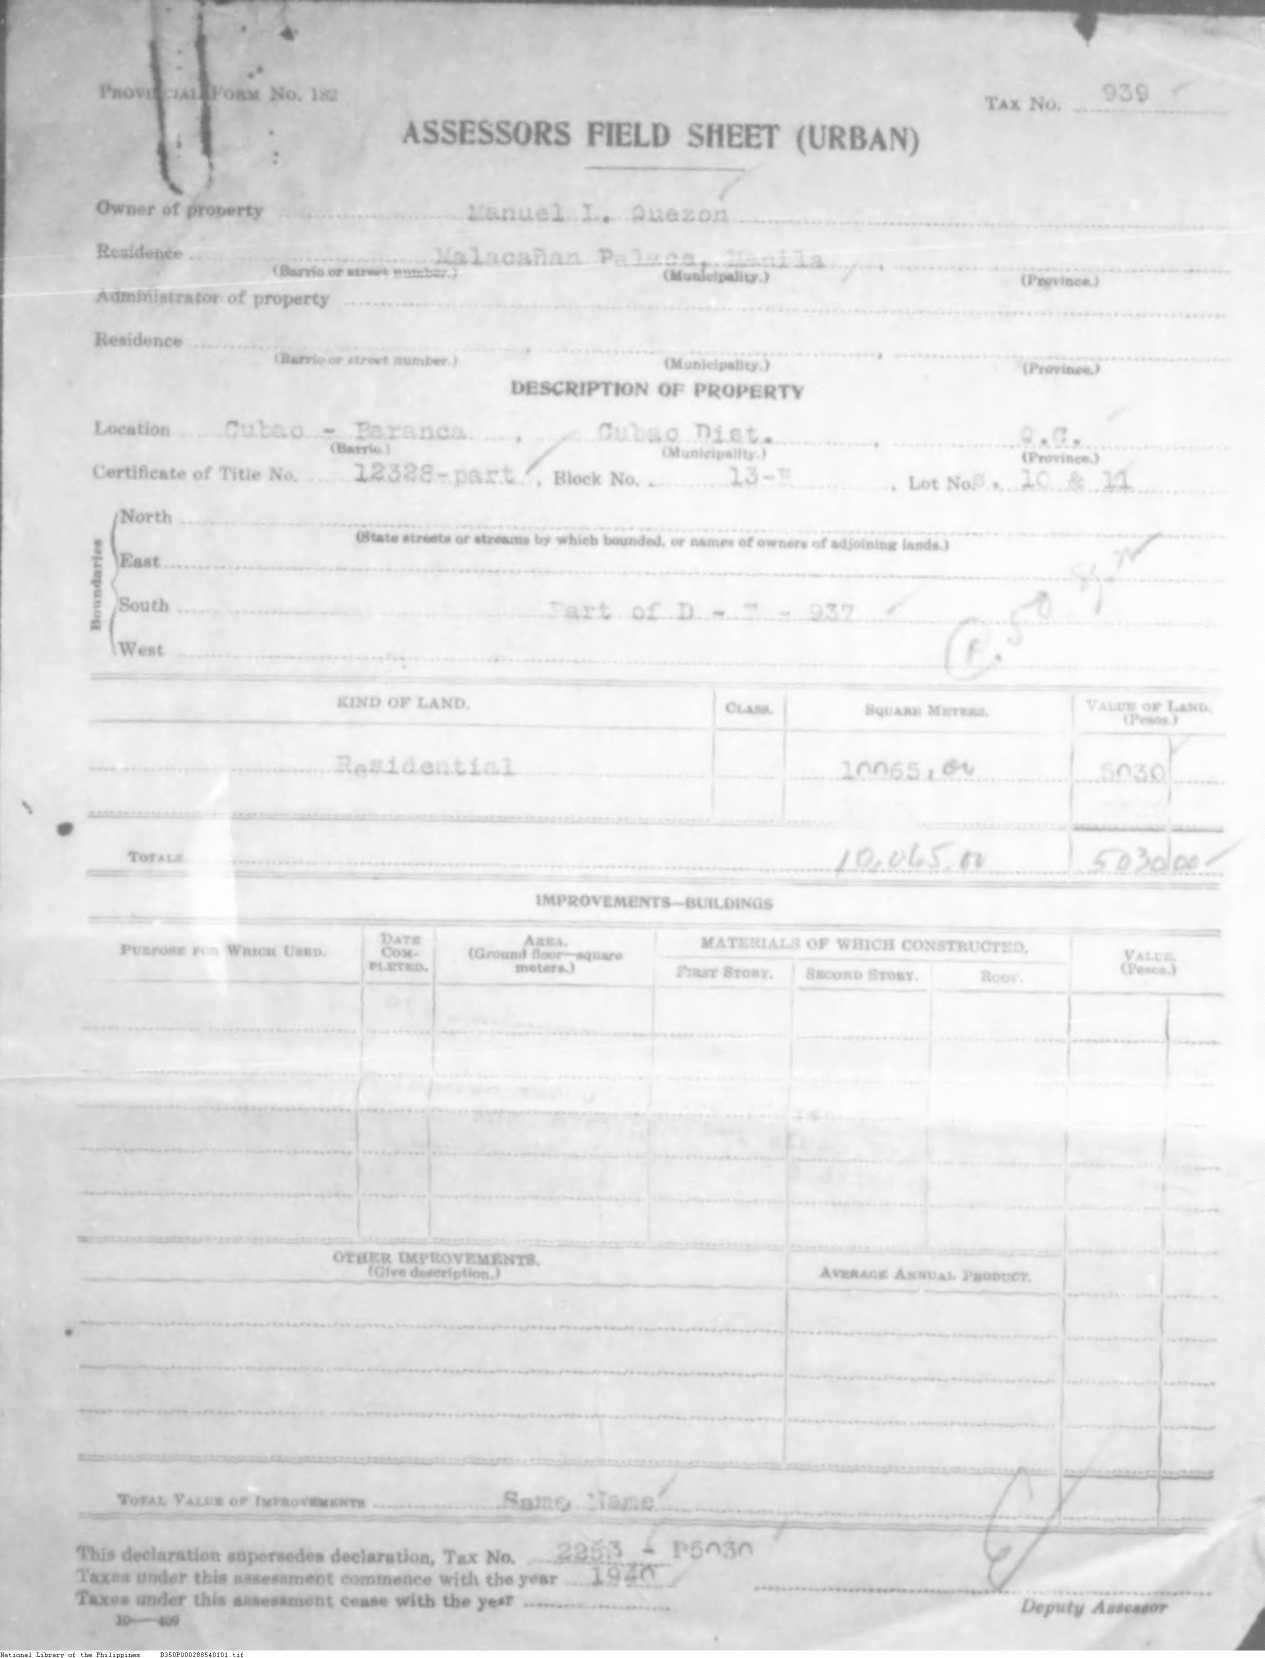 PROVINCIAL FORM No. 182
TAX No. 939
ASSESSORS FIELD SHEET (URBAN)
Owner of property Manuel L. Quezon
Residence Malacañan Palace, Manila
(Barrio or street number.) (Municipality.) (Province.)
Administrator of property
Residence
(Barrio or street number.) (Municipality.) (Province.)
DESCRIPTION OF PROPERTY
Location Cubao - Baranca, Cubao Dist. Q.C.
(Barrio.) (Municipality.) (Province.)
Certificate of Title No. 12328-part, Block No. 13- , Lot Nos. 10 & 11
Boundaries
North
(State streets or streams by which bounded, or names of owners of adjoining lands.)
East
South Part of D - - 937
West
P.50 sq.m
KIND OF LAND. CLASS. SQUARE METERS. VALUE OF LAND.
(Pesos.)
Residential 10065.00 5030
TOTALS 10,065.00 5030 00
IMPROVEMENTS—BUILDINGS
PURPOSE FOR WHICH USED. DATE COM-PLETED. AREA. (Ground floor—square meters.) MATERIALS OF WHICH CONSTRUCTED. VALUE. (Pesos.)
FIRST STORY. SECOND STORY. ROOF.
OTHER IMPROVEMENTS.
(Give description.) AVERAGE ANNUAL PRODUCT.
TOTAL VALUE OF IMPROVEMENTS Same Name
This declaration supersedes declaration, Tax No. 2253 - P5030
Taxes under this assessment commence with the year 1940
Taxes under this assessment cease with the year
Deputy Assessor
10—409
National Library of the Philippines D350P000288540101.tif